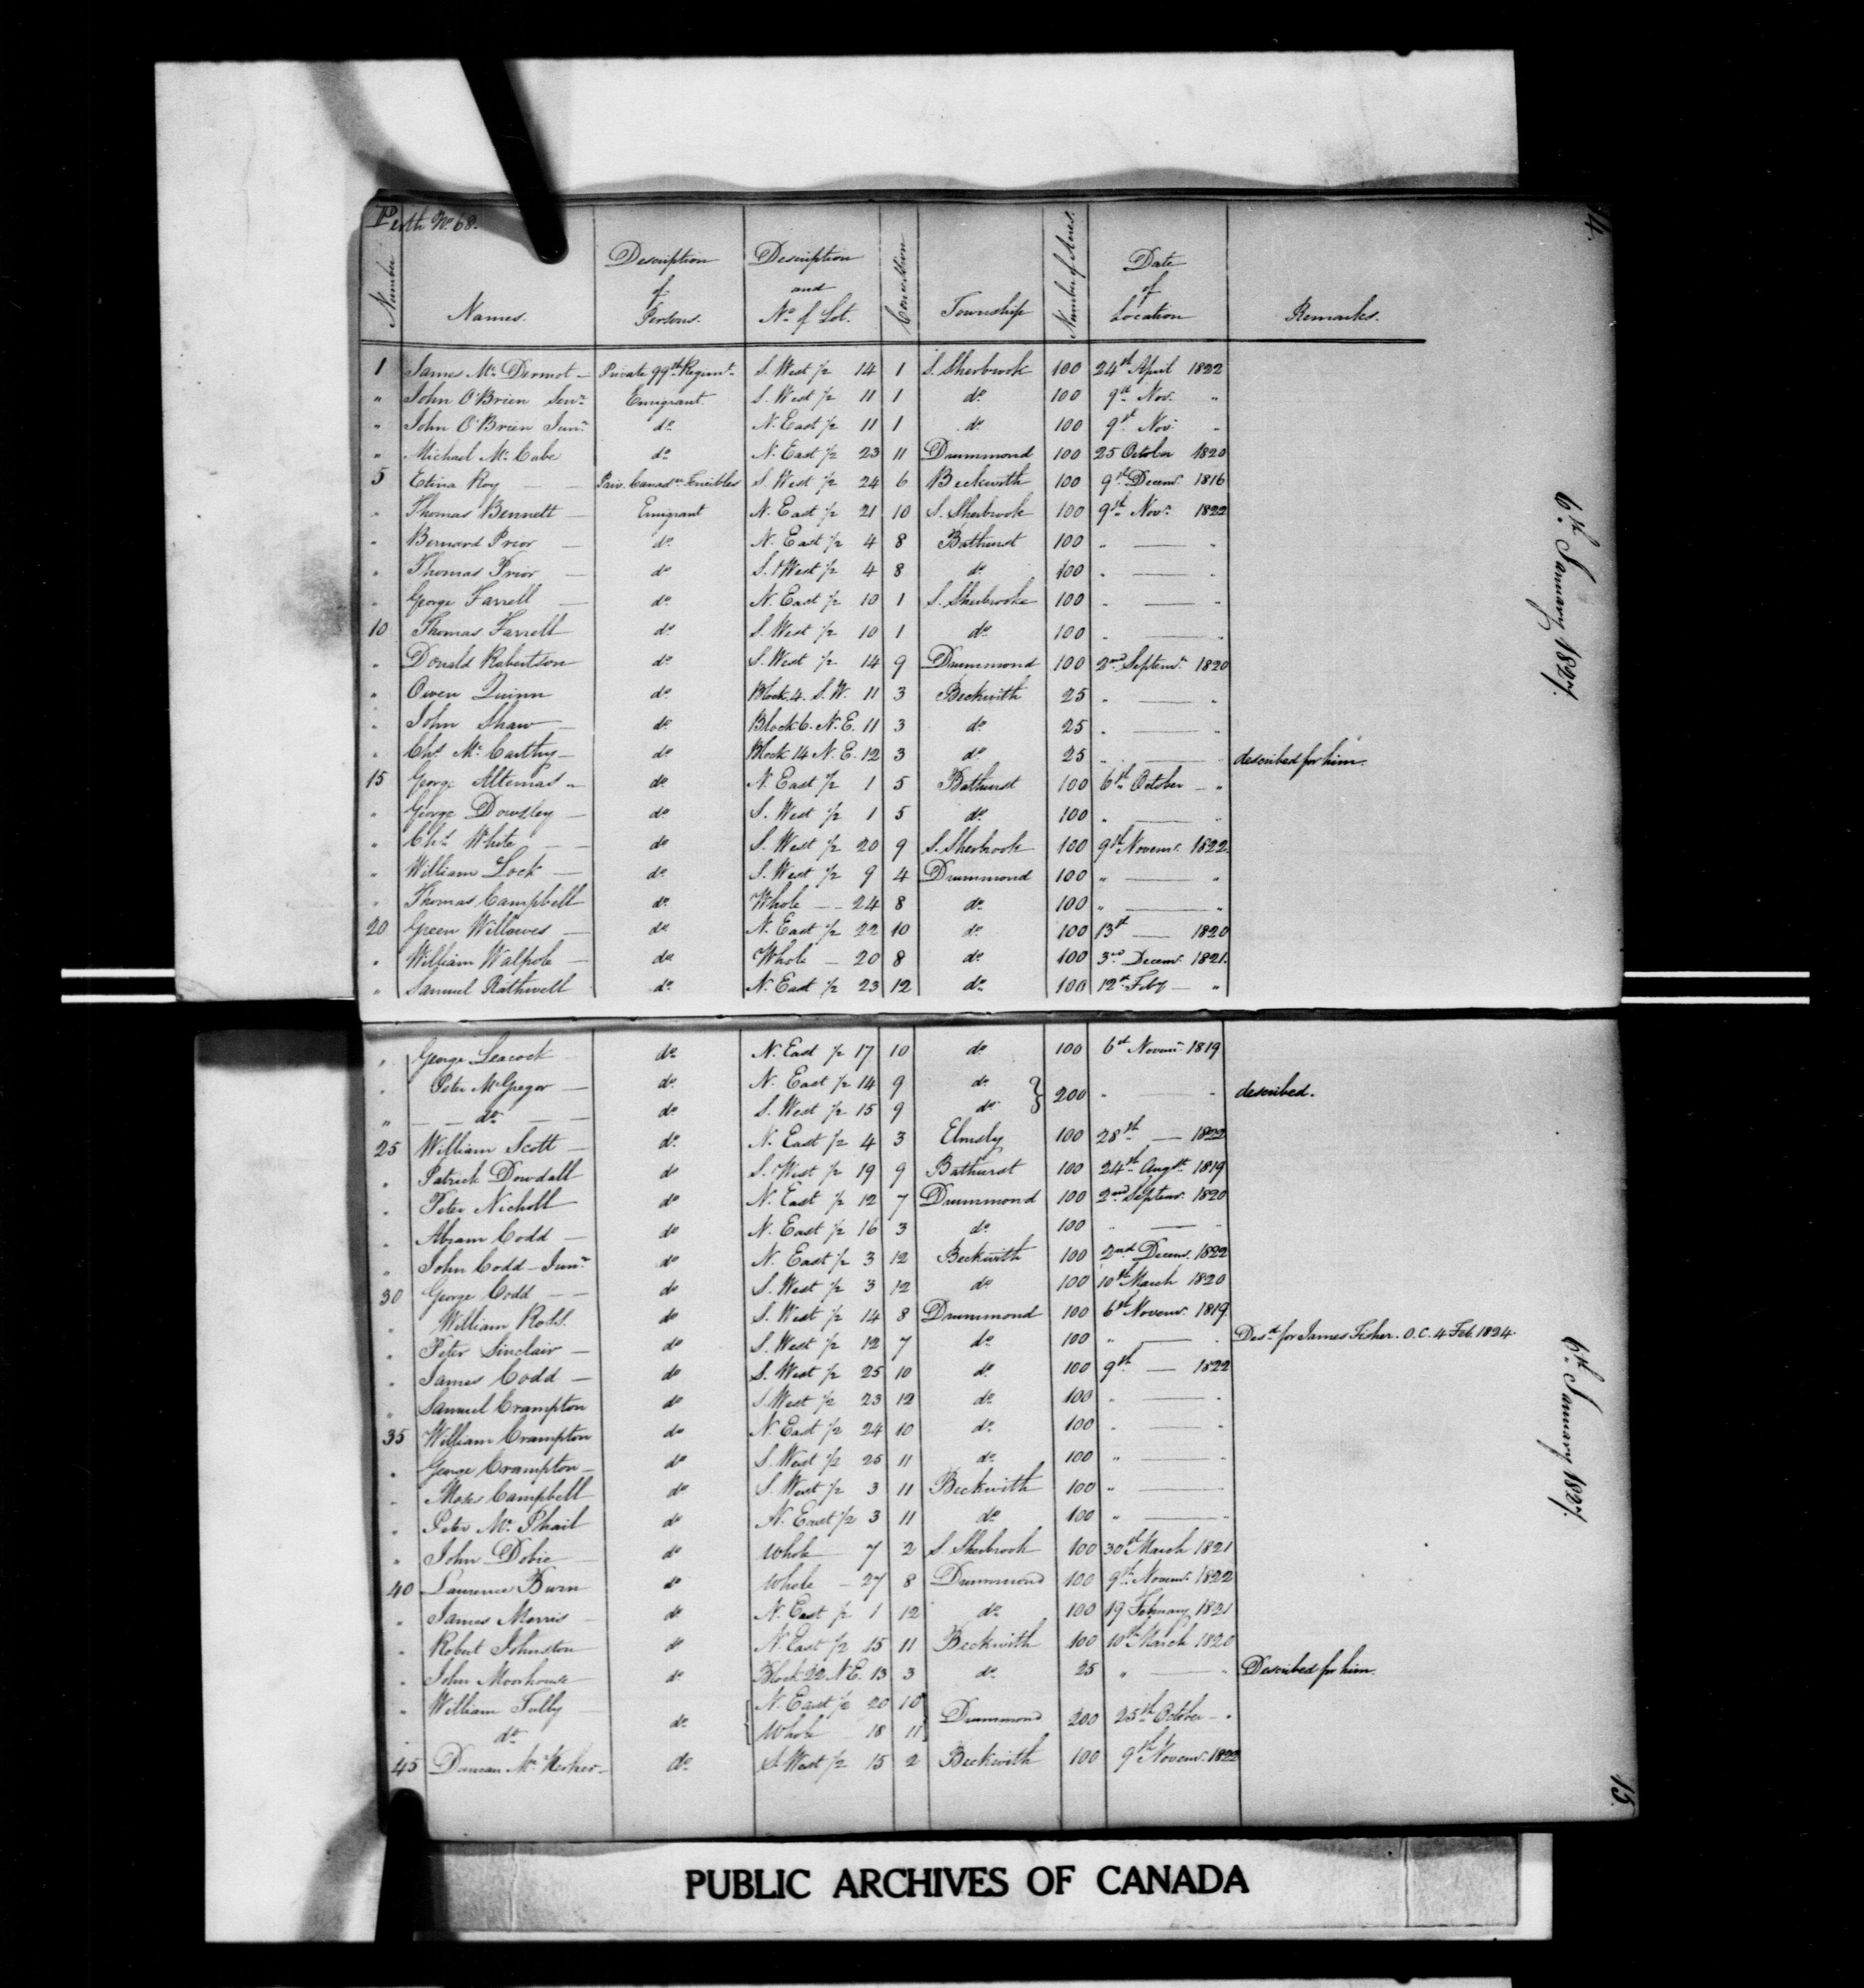 Perth No. 68.
14.
Number Names. Description of Persons. Description and No of Lot. Concession Township Number of Acres. Date of Location Remarks.
1 James Mc Dermot Private 99th Regimt S. West 1/2 14 1 S. Sherbrook 100 24th April 1822
" John O'Brien Senr Emigrant S. West 1/2 11 1 do 100 9th Nov. "
" John O'Brien Junr do N. East 1/2 11 1 do 100 9th Nov. "
" Michael Mc Cabe do N. East 1/2 23 11 Drummond 100 25 October 1820
5 Etina Roy Priv. Canadn Fencibles S. West 1/2 24 6 Beckwith 100 9th Decemr 1816
" Thomas Bennett Emigrant N. East 1/2 21 10 S. Sherbrook 100 9th Novr 1822
" Bernard Prior do N. East 1/2 4 8 Bathurst 100 " — "
" Thomas Prior do S. West 1/2 4 8 do 100 " — "
" George Farrell do N. East 1/2 10 1 S. Sherbrooke 100 " — "
10 Thomas Farrell do S. West 1/2 10 1 do 100 " — "
" Donald Robertson do S. West 1/2 14 9 Drummond 100 2nd Septemr 1820
" Owen Quinn do Block 4. S.W. 11 3 Beckwith 25 " — "
" John Shaw do Block 6. N.E. 11 3 do 25 " — "
" Chs Mc Carthy do Block 14 N.E. 12 3 do 25 " — " described for him.
15 George Altemas do N. East 1/2 1 5 Bathurst 100 6th October — "
" George Dowsley do S. West 1/2 1 5 do 100 " — "
" Chs White do S. West 1/2 20 9 S. Sherbrook 100 9th Novemr 1822
" William Lock do S. West 1/2 9 4 Drummond 100 " — "
" Thomas Campbell do Whole 24 8 do 100 " — "
20 Green Willows do N. East 1/2 22 10 do 100 13th — 1820
" William Walpole do Whole 20 8 do 100 3rd Decemr 1821.
" Samuel Rathwell do N. East 1/2 23 12 do 100 12th Feby — "
6th January 1827.
" George Leacock do N. East 1/2 17 10 do 100 6th Novemr 1819
" Peter McGregor do N. East 1/2 14 9 do } 200 " — " described.
" do do S. West 1/2 15 9 do
25 William Scott do N. East 1/2 4 3 Elmsly 100 28th — 1822
" Patrick Dowdall do S. West 1/2 19 9 Bathurst 100 24th Augst 1819
" Peter Nicholl do N. East 1/2 12 7 Drummond 100 2nd Septemr 1820
" Abram Codd do N. East 1/2 16 3 do 100 " — "
" John Codd Junr do N. East 1/2 3 12 Beckwith 100 2nd Decemr 1822
30 George Codd do S. West 1/2 3 12 do 100 10th March 1820
" William Ross do S. West 1/2 14 8 Drummond 100 6th Novemr 1819
" Peter Sinclair do S. West 1/2 12 7 do 100 " — " Desd for James Fisher. O.C. 4 Feb. 1824
" James Codd do S. West 1/2 25 10 do 100 9th — 1822
" Samuel Crampton do S. West 1/2 23 12 do 100 " — "
35 William Crampton do N. East 1/2 24 10 do 100 " — "
" George Crampton do S. West 1/2 25 11 do 100 " — "
" Moses Campbell do S. West 1/2 3 11 Beckwith 100 " — "
" Peter Mc Phail do N. East 1/2 3 11 do 100 " — "
" John Dobie do Whole 7 2 S Sherbrook 100 30th March 1821
40 Laurence Burn do Whole 27 8 Drummond 100 9th Novemr 1822
" James Morris do N. East 1/2 1 12 do 100 19 February 1821
" Robert Johnston do N. East 1/2 15 11 Beckwith 100 10th March 1820
" John Moorhouse do Block 22 N.E. 13 3 do 25 " — " Described for him.
" William Tully do { N. East 1/2 20 10 } Drummond 200 25th October — "
" do Whole 18 11
45 Duncan Mc do S. West 1/2 15 2 Beckwith 100 9th Novemr 1822
6th January 1827.
15.
PUBLIC ARCHIVES OF CANADA